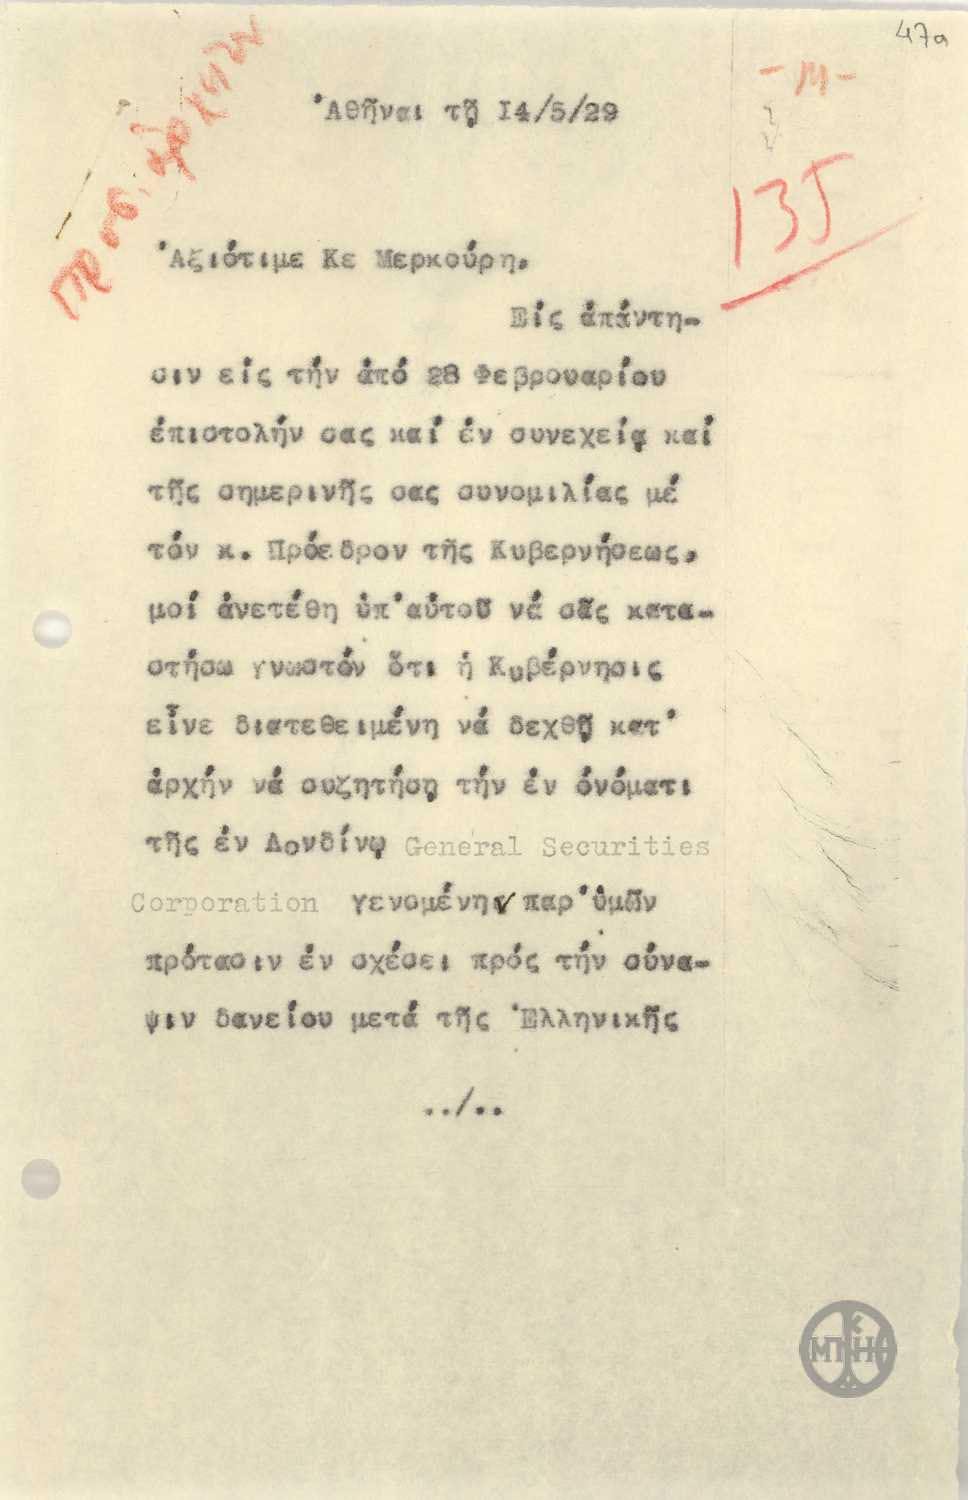 47a
- М -
135
Ἀθῆναι τῇ 14/5/29
Ἀξιότιμε Κε Μερκούρη,
Εἰς ἀπάντη-
σιν εἰς τήν ἀπό 28 Φεβρουαρίου
ἐπιστολήν σας καί ἐν συνεχείᾳ καί
τῆς σημερινῆς σας συνομιλίας μέ
τόν κ. Πρόεδρον τῆς Κυβερνήσεως,
μοί ἀνετέθη ὑπ'αὐτοῦ νά σᾶς κατα-
στήσω γνωστόν ὅτι ἡ Κυβέρνησις
εἶνε διατεθειμένη νά δεχθῇ κατ'
ἀρχήν νά συζητήσῃ τήν ἐν ὀνόματι
τῆς ἐν Λονδίνῳ General Securities
Corporation γενομένην παρ'ὑμῶν
πρότασιν ἐν σχέσει πρός τήν σύνα-
ψιν δανείου μετά τῆς Ἑλληνικῆς
../..
ΜΠΚΗ